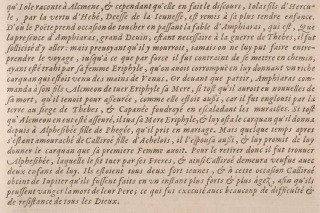 qu'Iole raconte à Alcmene, & cependant qu'elle en fait le discours, Iolas fils d'Hercu-
le, par la vertu d'Hebé, Deesse de la Ieunesse, est remis à sa plus tendre enfance.
D'où le Poëte prend occasion de toucher en passant la fable d'Amphiaras, qui est, que
la presence d'Amphiaras, grand Deuin, estant necessaire à la guerre de Thebes, il fut
sollicité d'y aller: mais preuoyant qu'il y mourroit, iamais on ne luy put faire entre-
prendre le voyage, iusqu'à ce que par force il fut contraint de se mettre en chemin,
ayant esté trahi par sa femme Eriphyle, qu'on auoit corrompuë en luy donnant vn riche
carquan qui estoit venu des mains de Venus. Or deuant que partir, Amphiaras com-
manda à son fils Alcmeon de tuer Eriphyle sa Mere, si tost qu'il auroit eu nouuelles de
sa mort, qu'il tenoit pour asseurée, comme elle estoit aussi, car il fut englouti par la
terre au siege de Thebes, & Capanée foudroyé en escaladant les murailles. Si tost
qu'Alcmeon en eut esté asseuré, il tua sa Mere Eriphyle, & luy osta le carquan qu'il donna
depuis à Alphesibée fille de Phegée, qu'il prit en mariage. Mais quelque temps apres
s'estant amouraché de Calliroé fille d'Achelois, il l'espousa aussi, & luy promit de luy
donner le carquan que sa premiere Femme auoit. Pour le retirer donc il fut trouuer
Alphesibée, laquelle le fit tuer par ses Freres, & ainsi Calliroé demeura vefue auec
deux enfans de luy. Ils estoient tous deux fort ieunes, & à cette occasion Calliroé
obtint de Iupiter qu'ils fussent faits en vn instant plus forts & plus âgez, afin qu'ils
peussent vanger la mort de leur Pere; ce qui fut executé auec beaucoup de difficulté &
de resistance de tous les Dieux.